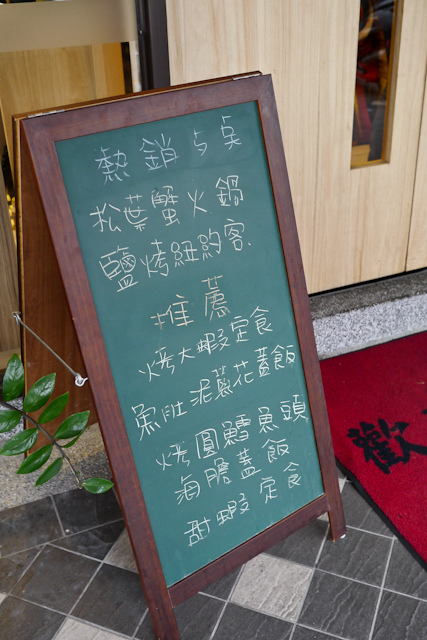 熱銷ㄅㄠˋ
松葉蟹火鍋
鹽烤紐約客
推薦
烤大蝦定食
魚肚泥蔥花蓋飯
烤圓鱈魚頭
海膽蓋飯
甜蝦定食
歡